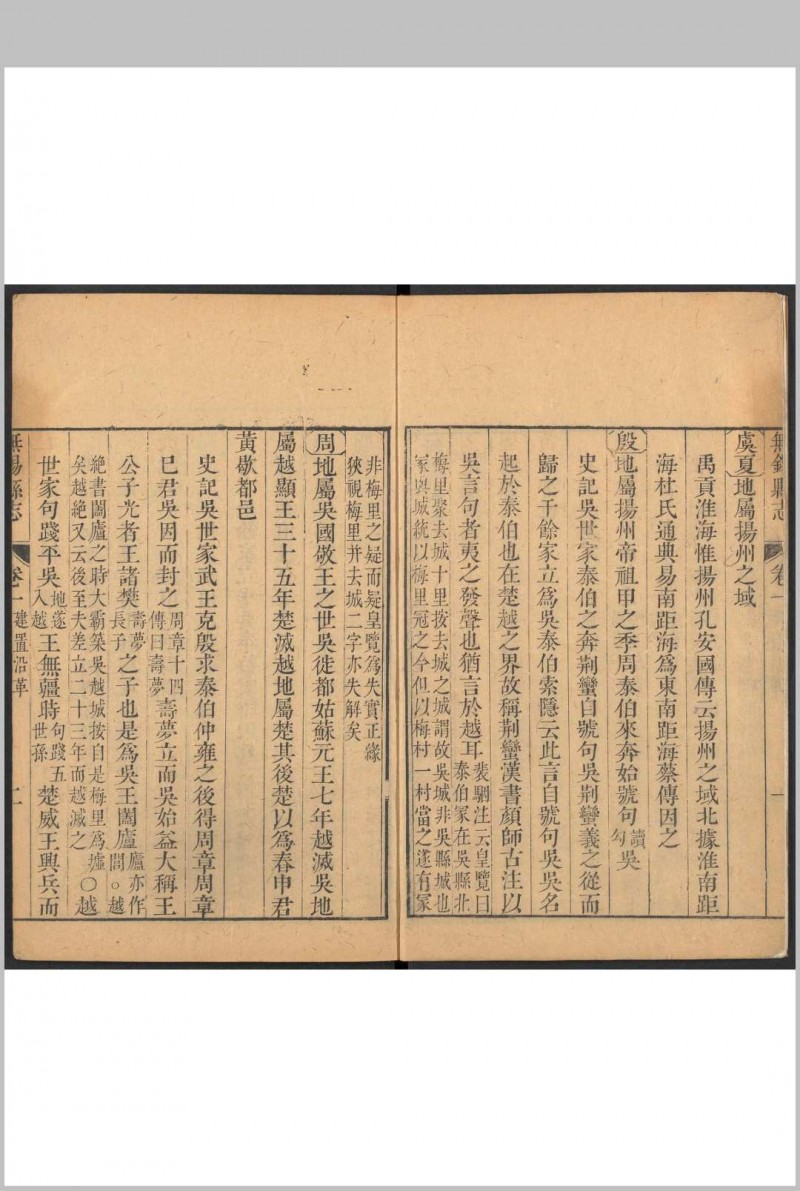 無錫縣志
卷一
一
虞夏地屬揚州之域
禹貢淮海惟揚州孔安國傳云揚州之域北據淮南距
海杜氏通典易南距海爲東南距海蔡傳因之
殷地屬揚州帝祖甲之季周泰伯來奔始號句讀勾吳
史記吳世家泰伯之奔荆蠻自號句吳荆蠻義之從而
歸之千餘家立爲吳泰伯索隱云此言自號句吳吳名
起於泰伯也在楚越之界故稱荆蠻漢書顏師古注以
吳言句者夷之發聲也猶言於越耳裴駰注云皇覽曰泰伯冢在吳縣北
梅里聚去城十里按去城之城謂故吳城非吳縣城也
冢與城統以梅里冠之今但以梅村一村當之遂有冢
非梅里之疑而疑皇覽爲失實正緣
狹視梅里并去城二字亦失解矣
周地屬吳國敬王之世吳徙都姑蘇元王七年越滅吳地
屬越顯王三十五年楚滅越地屬楚其後楚以爲春申君
黃歇都邑
史記吳世家武王克殷求泰伯仲雍之後得周章周章
已君吳因而封之周章十四傳曰壽夢壽夢立而吳始益大稱王
公子光者王諸樊壽夢長子之子也是爲吳王闔廬廬亦作閭○越
絶書闔廬之時大霸築吳越城按自是梅里爲墟○越
矣越絶又云後至夫差立二十三年而越滅之
世家句踐平吳地遂入越王無疆時句踐五世孫楚威王興兵而
無錫縣志
卷一
建置沿革
二